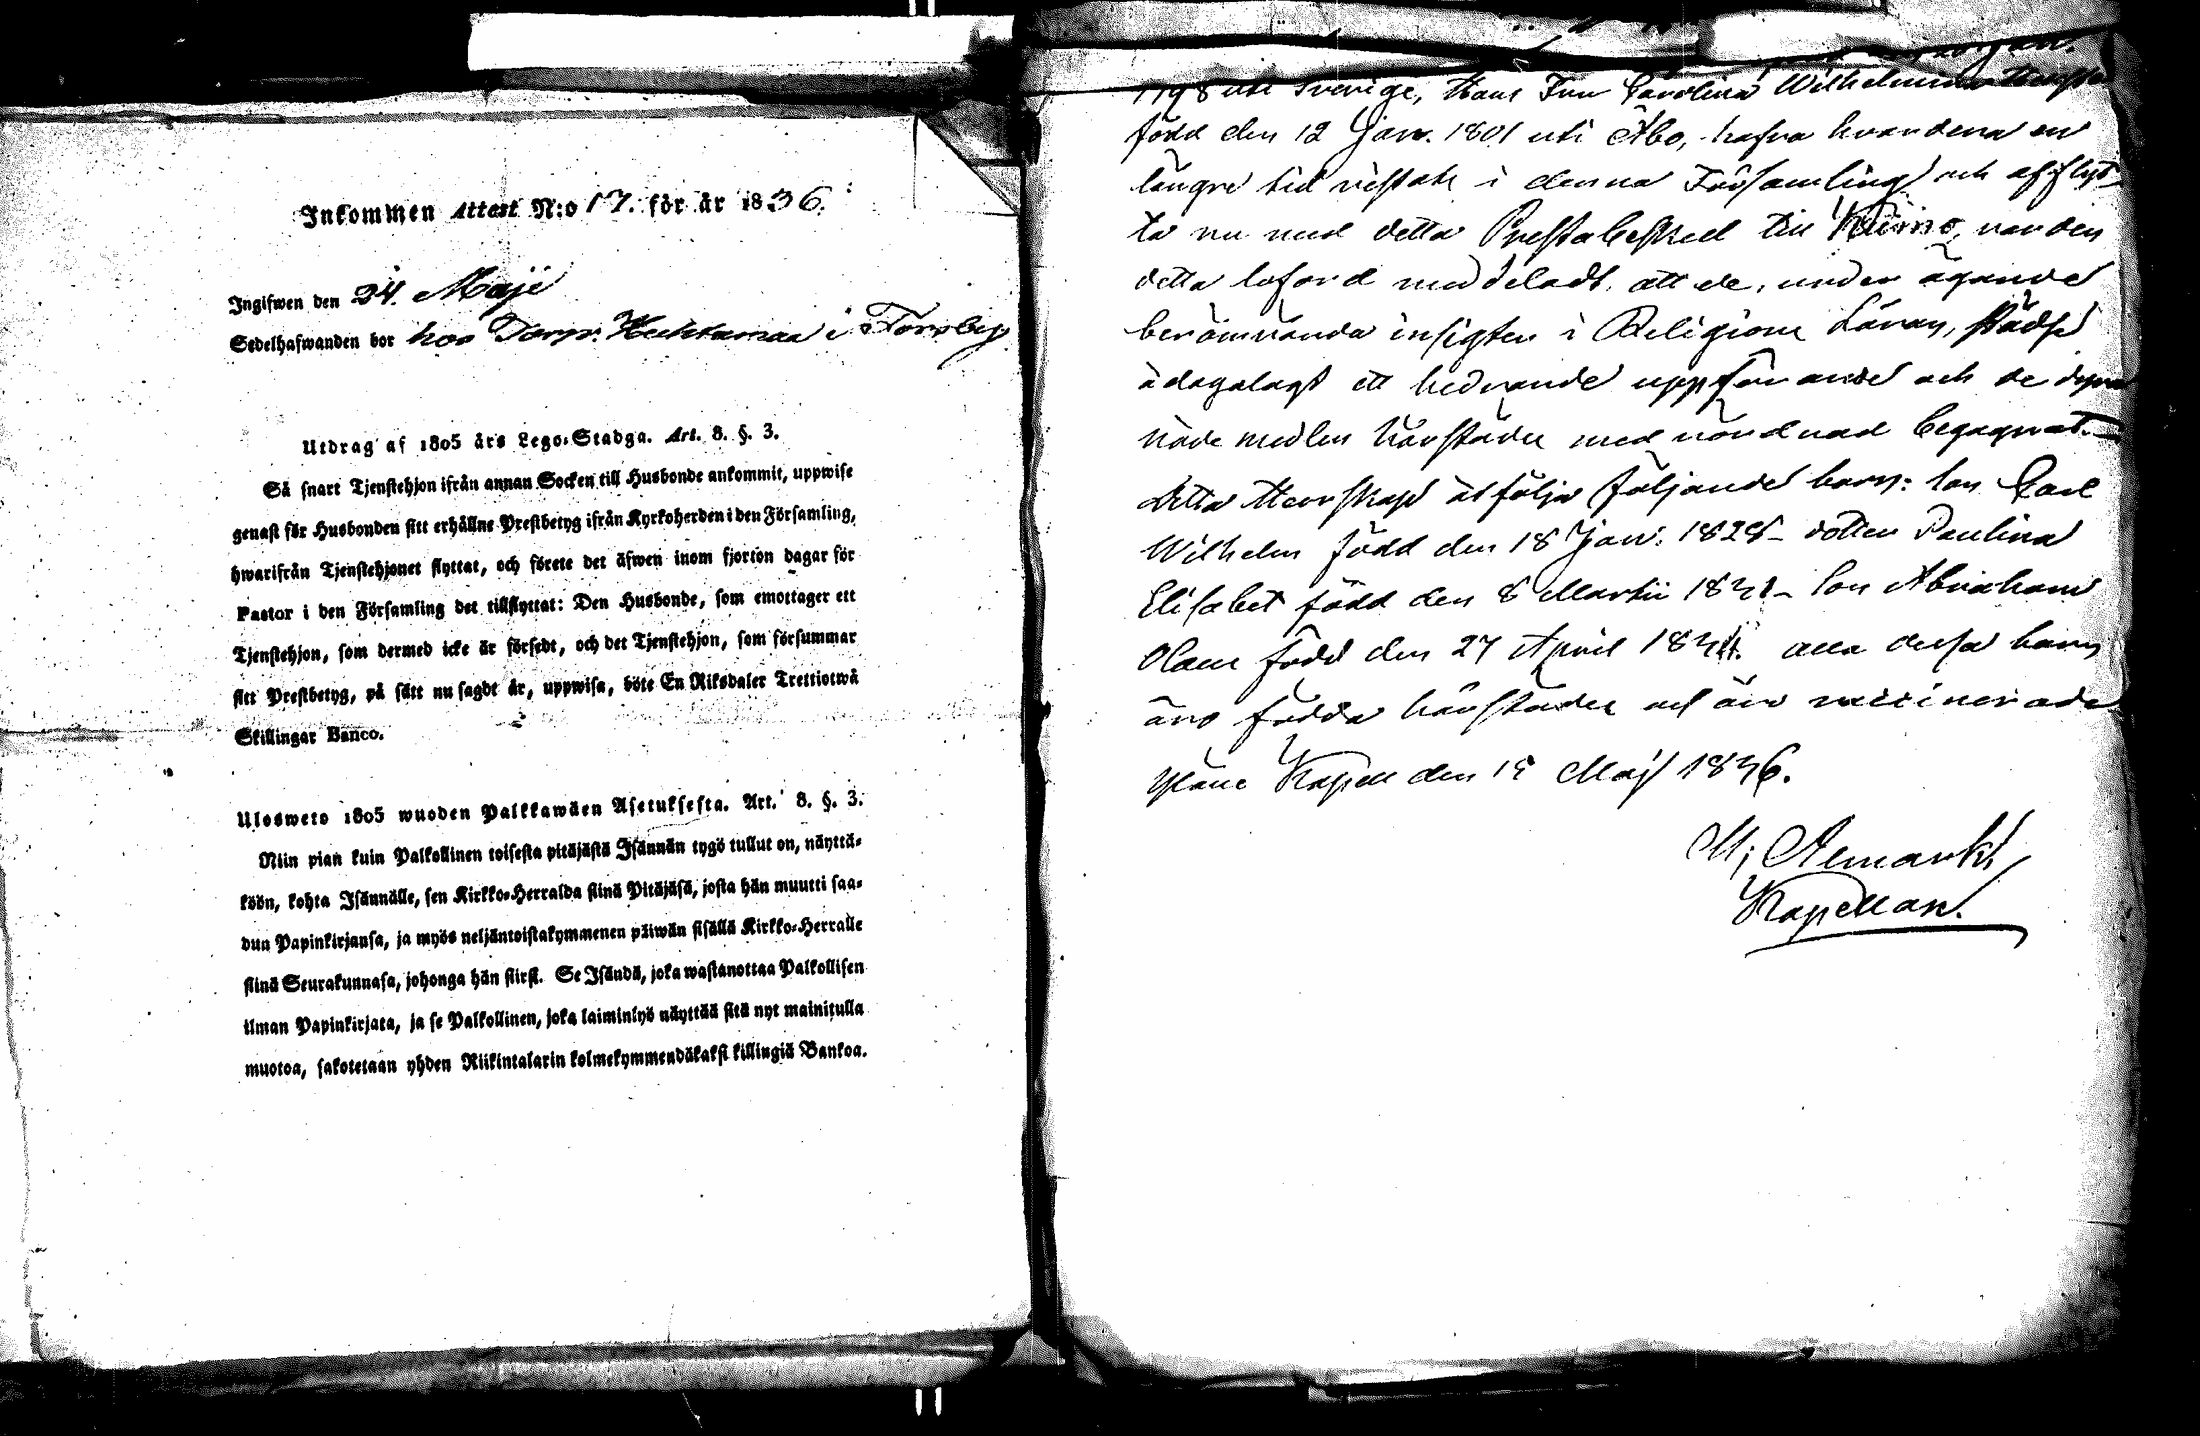 Inkommen Attest N:o 17. för är 1836.
Ingifwen den 24. Maji
Sedelhafwanden bor hos Torp. Huhtamaa i Torsby
Utdrag af 1805 års Lego-Stadga. Art. 8. §. 3.
Så snart Tjenstehjon ifrån annan Socken till Husbonde ankommit, uppwise
genast för Husbonden sitt erhållne Prestbetyg ifrån Kyrkoherden i den Församling,
hwarifrån Tjenstehjonet flyttat, och förete det äfwen inom fjorton dagar för
Pastor i den Församling det tillflyttat: Den Husbonde, som emottager ett
Tjenstehjon, som dermed icke är försedt, och det Tjenstehjon, som försummar
sitt Prestbetyg, på sätt nu sagdt är, uppwisa, böte En Riksdaler Trettiotwå
Skillingar Banco.
Ulosweto 1805 wuoden Palkkawäen Asetuksesta. Art. 8. §. 3.
Niin pian kuin Palkollinen toisesta pitäjästä Isännän tygö tullut on, näyttä-
köön, kohta Isännälle, sen Kirkko-Herralda siinä Pitäjäsä, josta hän muutti saa-
dun Papinkirjansa, ja myös neljäntoistakymmenen päiwän sisällä Kirkko-Herralle
siinä Seurakunnasa, johonga hän siirsi. Se Isändä, joka wastanottaa Palkollisen
ilman Papinkirjata, ja se Palkollinen, joka laiminlyö näyttää sitä nyt mainitulla
muotoa, sakotetaan yhden Riikintalarin kolmekymmendäkaksi killingiä Bankoa.
1798 uti Sverige, Hans Fru Carolina Wilhelmina
född den 12 Jan. 1801 uti Åbo, hafva hvardera en
längre tid vistats i denna Församling och afflyt-
ta nu med detta Prestabesked till Kuimo, varden
detta loford meddeladt, att de, under ägande
berömvärda insigter i Religions Läran, städse
ådagalagt ett hedrande uppförande och de dyra
nåde medlen härstädes med vördnad begagnat.
Detta Herrskap åtfölja följande barn: son Carl
Wilhelm född den 18 Jan. 1828 - dotter Paulina
Elisabet född den 8 Martii 1831 - son Abraham
Olam född den 27 April 1834. alla dessa barn
äro födda härstädes och äro vaccinerade
Yläne Kapell den 15 Maji 1836.
M; Aemarkt
Kapellan.